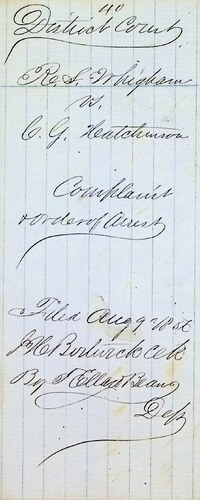 40
District Court
R. S. Whigham
vs.
C. G. Hutchinson
Complaint
& order of Arrest
Filed Aug 9
Clk
By
Dep